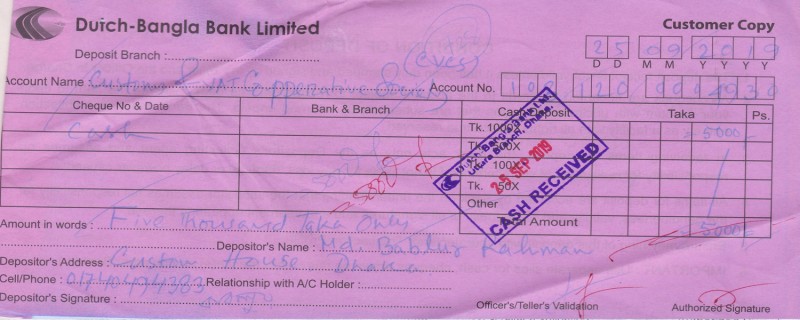 Dutch-Bangla Bank Limited
Customer Copy
Deposit Branch :
25 09 2019
D D M M Y Y Y Y
(CVCS)
Account Name Custom & VAT Co-pperative Society Account No.
Cheque No & Date Bank & Branch Cash Deposit Taka Ps.
Cash Tk. 1000X 5000/-
Tk. 500X
Tk. 100X
Tk. 50X
Other
Total Amount 5000/-
5000/-
Dutch-Bangla Bank Ltd.
Uttara Branch, Dhaka.
25 SEP 2019
CASH RECEIVED
Amount in words : Five Thousand Taka Only
Depositor's Name : Md. Bablur Rahman
Depositor's Address : Custom House Dhaka
Cell/Phone : Relationship with A/C Holder :
Depositor's Signature :
Officer's/Teller's Validation
Authorized Signature